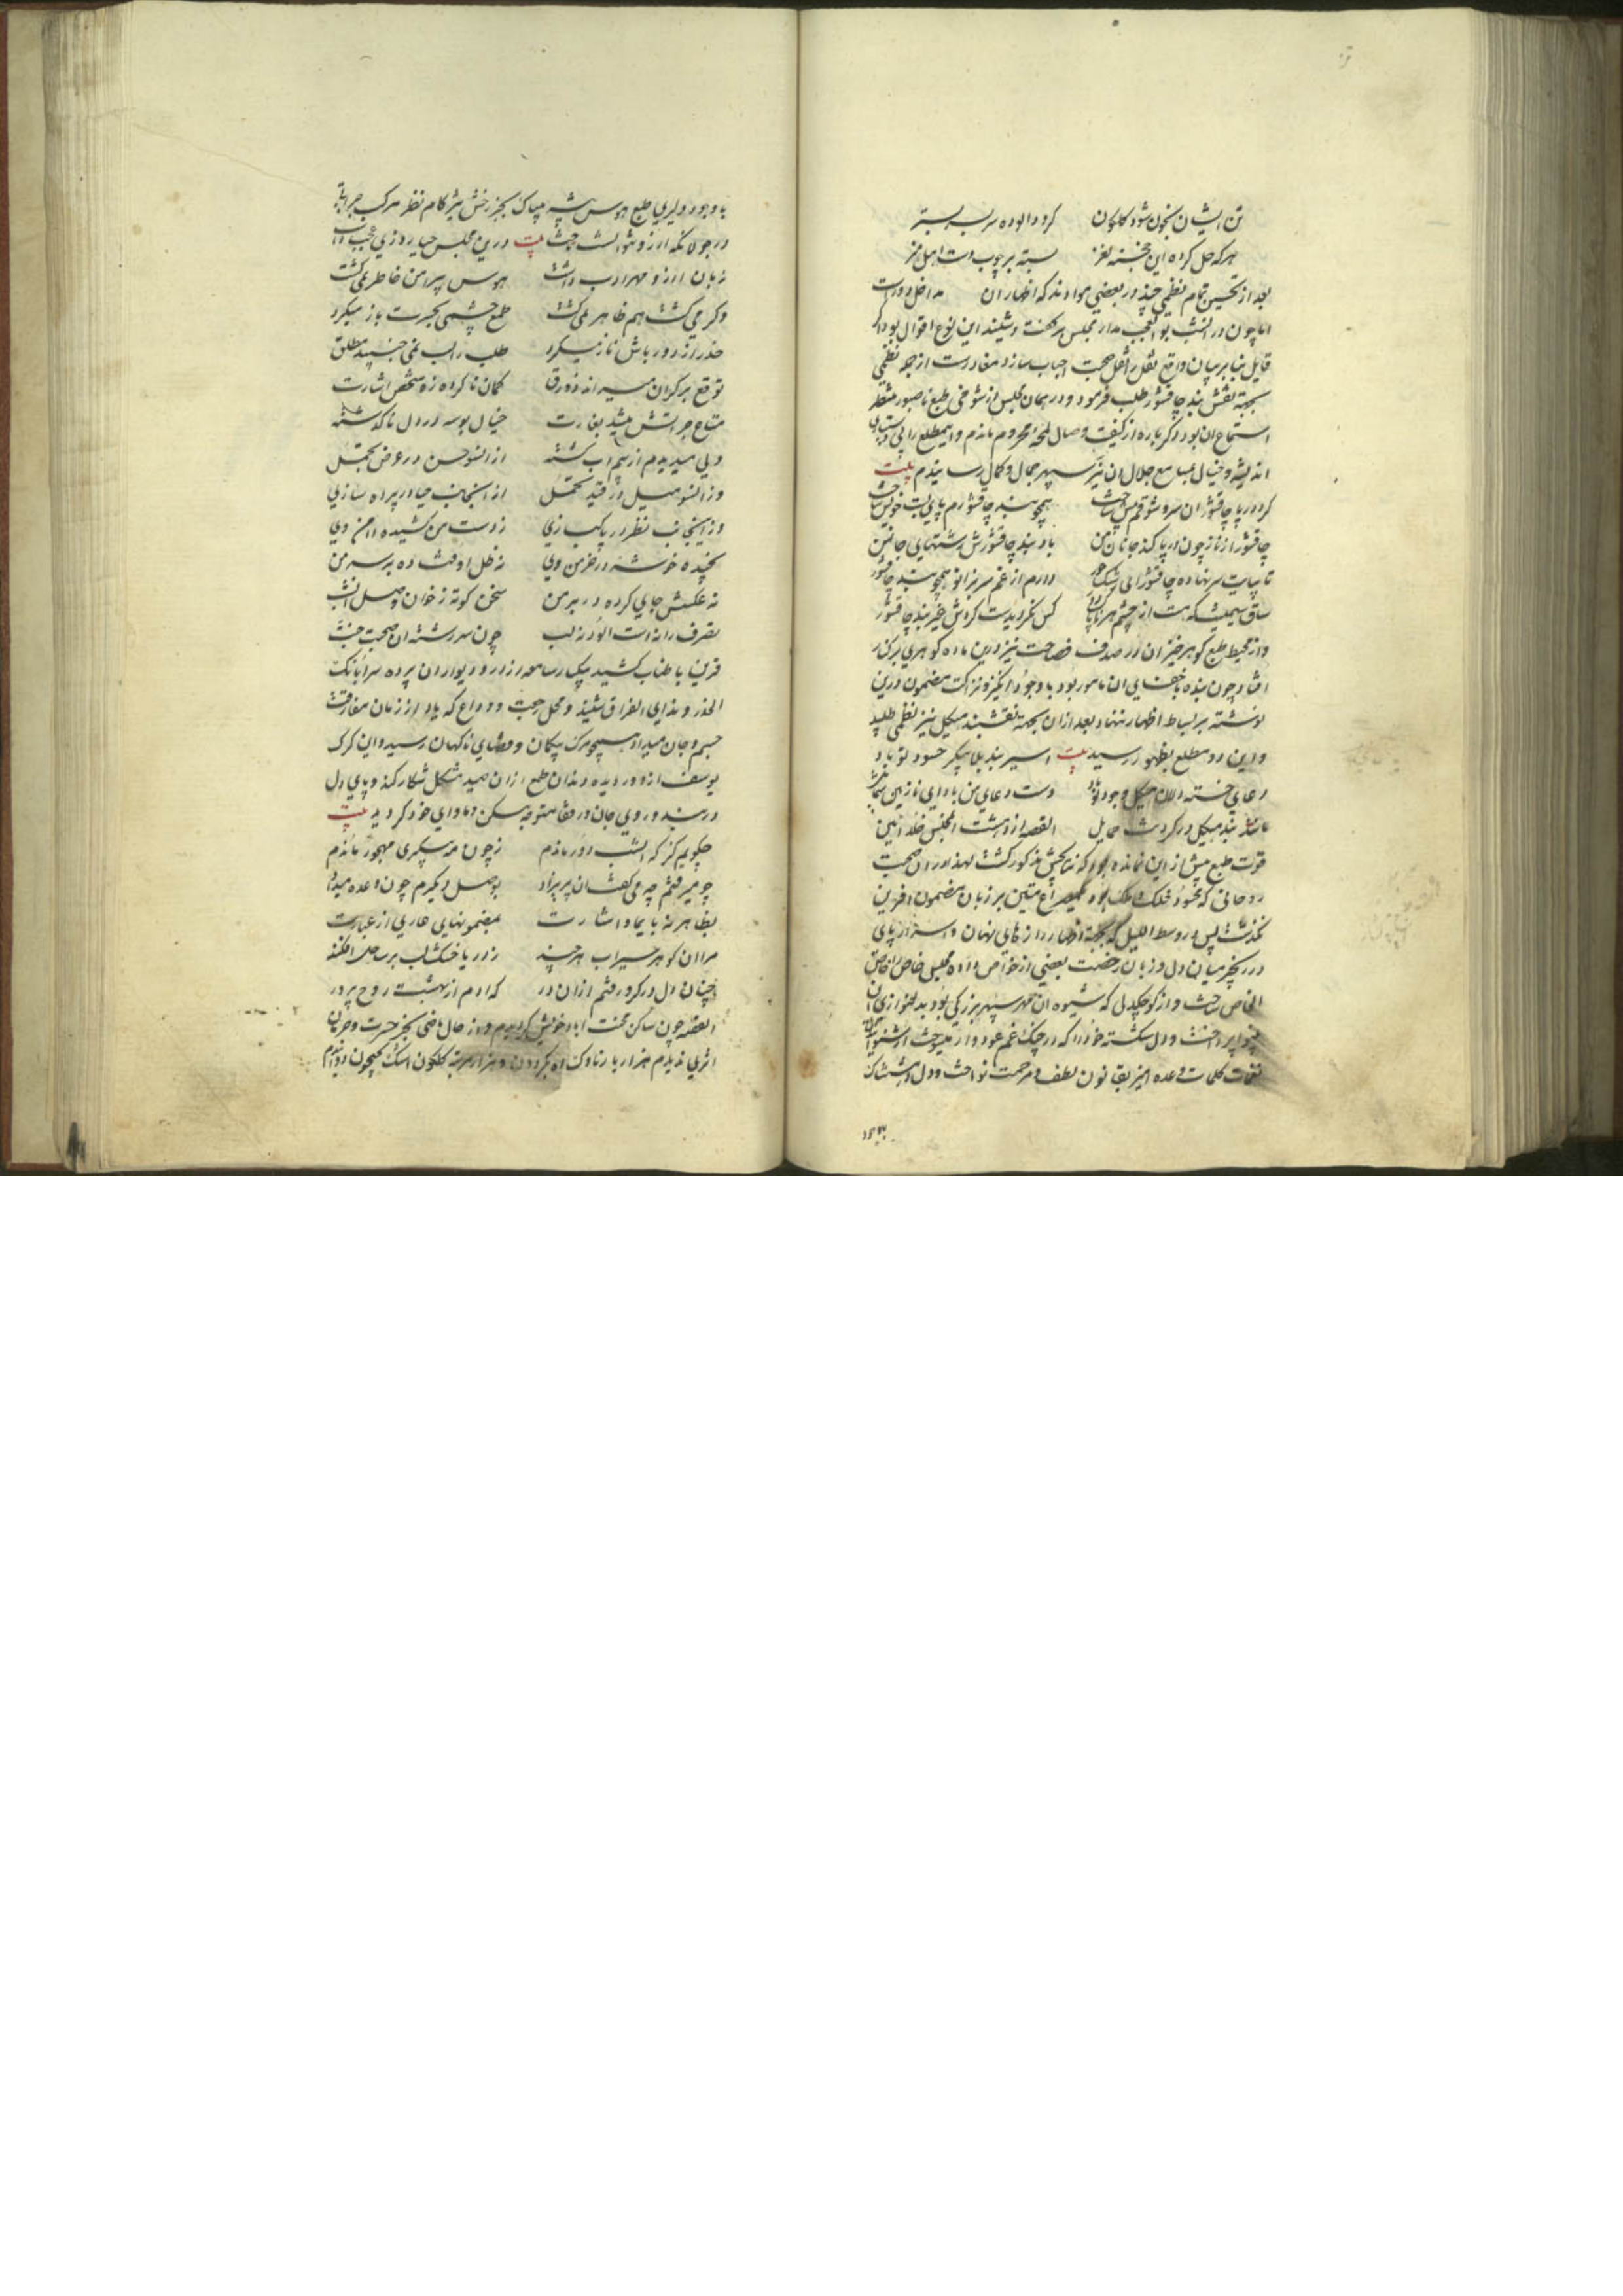 تن ایشان بخون شود گلگون گردد الوده سر بسته
هر که حل کرده این خجسته لغز بسته بر چوب دست اهل هنر
بعد از تحسین تمام نظمی چند در بعضی مواد ند که اظهار ان
اما چون در انشب بو العجب مدار مجلس بر گفت و شنید این نوع اقوال بود اگر
قایل بنا بر بیان واقع نقل صحبت احباب سازد معذورست از جمله نظمی
بجهة نقش بند چاقشور طلب فرمود و در همان مجلس از شوخی طبع ناصبور منتظر
استماع ان بود دگر باره از کیفیت وصال لمحه محروم ماندم و این مطلع را
اندیشه و خیال بمسامع جلال ان نیر سپهر جمال و کمال رسانیدم بیت
کرد در پا چاقشور ان سرو همچو بند چاقشورم پای بست خویش ساخت
چاقشور از ناز چون در پا کند جانان من باد بند چاقشورش رشتهای جان من
تا بپایت سر نهاده چاقشور ای رشک حور دارم از غم سر بزانو همچو بند چاقشور
ساق سیمینت که هست از چشم کس نگردیدست گردش غیر بند چاقشور
و از محیط طبع گوهر خیز ان در صدف فصاحت نیز درین ماده گوهری بر کنار
افتاد چون بنده باخفای ان مامور بود با وجود انگیز و نزاکت مضمون درین
نوشته بر بساط اظهار ننهاد بعد ازان بجهة نقشبند هیکل نیز نظمی طلبید
و این دو مطلع بظهور رسید بیت اسیر بند بلا پیکر حسود تو باد
دعای خسته دلان هیکل وجود تو باد دست دعای من باد ای نازنین شمایل
مانند بند هیکل در گردنت حمایل القصه از دهشت انمجلس خلد ائین
قوت طبع بیش از این نمانده بود که نتایجش مذکور گشت لهذا در ان صحبت
روحانی که محسود فلک و ملک بود مصراع متین بر زبان مضمون افرین
نگذشت پس در وسط اللیل که بجهة اظهار راز های نهان و اسرار
در بحر میان دل و زبان رخصت بعضی از خواص داده مجلس خاص را خاص
الخاص ساخت و از کوچکدلی که شیوه ان مهر سپهر بزرگی بود بدلنوازی ان
بینوا پرداخت و دل شکسته خود را که در چنگ غم عود وار میسوخت از شنوانیدن
نغمات کلمات وعده امیز بقانون لطف و مرحمت نواخت و دل دهشتناک
با وجود دلیری طبع هوس پیشه بیباک بجز رخش تیز کام نظر مرکب جرات
در جولانگه ارزو نتوانست تاخت بیت درین مجلس حیا روزی عجب داشت
زبان ارزو مهر ادب داشت هوس پیرامن خاطر نمی گشت
وگر می گشت هم ظاهر نمی گشت طمع چشمی بحسرت باز میکرد
حذر از دور باش ناز میکرد طلب را لب نمی جنبید مطلق
توقع بر کران میراند زورق گمان نا کرده زو شخص اشارت
متاع جراتش میشد بغارت خیال بوسه در دل نا گذشته
ولی میدیدم از بیم اب گشته از انسو حسن در عرض تجمل
وز انسو میل در قید تحمل از انجانب حیا در پرده سازی
وز اینجانب نظر در پاکبازی ز دست من کشیده دامن وی
نچیده خوشه از خرمن وی نه ظل او فتاده بر سر من
نه عکسش جای کرده در بر من سخن کوته ز خوان وصل انشب
تصرف را نه دست الود نه لب چون سر رشته ان صحبت جنت
قرین با طناب کشید پیک سامعه از در و دیوار ان پرده سرا بانک
الحذر و ندای الفراق شنید و محل رجعت و وداع که یاد از زمان مفارقت
جسم و جان میداد همچو مرگ بیگمان و قضای ناگهان رسید و این گرگ
یوسف از دور دیده دندان طمع ازان صید مشکل شکار کند و پای دل
در بند و روی جان در قفا متوجه مسکن و ماوای خود گردید بیت
چگویم کز که انشب دور ماندم ز چون مه پیکری مهجور ماندم
چو میرفتم چه می گفت ان پریزاد بوصل دیگرم چون وعده میداد
بظاهر نه بایما و اشارت بمضمونهای عاری از عبارت
مرا ان گوهر سیراب هر چند ز دریا خشک لب بر ساحل افکند
چنان دل در گرو رفتم ازان در که ادم از بهشت روح پرور
القصه چون ساکن محنت اباد خویش گردیدم و از حال ماضی بجز حسرت و حرمان
اثری ندیدم هزار بار ناوک اه بگردون و هزار مرتبه گلگون اشک بجیحون دوانیدم